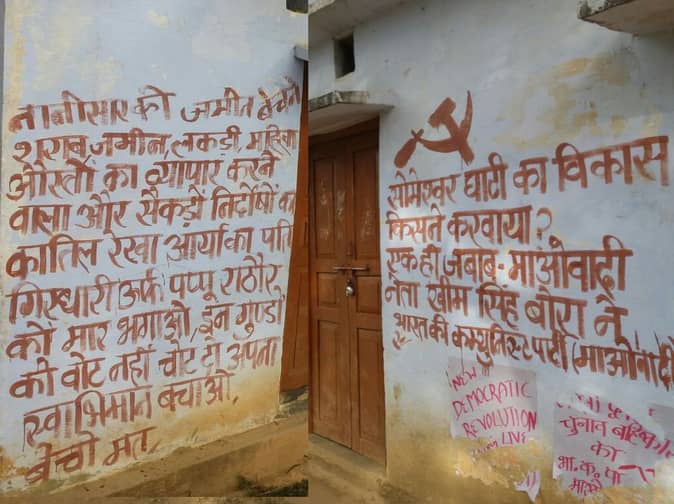 नानीसार को जमीन बेचने
शराब, जमीन, लकड़ी, महिला
औरतों का व्यापार करने
वाला और सैकड़ों निर्दोषों का
कातिल रेखा आर्या का पति
गिरधारी उर्फ पप्पू राठौर
को मार भगाओ, इन गुण्डों
को वोट नहीं चोट दो अपना
स्वाभिमान बचाओ,
बेचो मत
सोमेश्वर घाटी का विकास
किसने करवाया?
एक ही जबाब- माओवादी
नेता खीम सिंह बोरा ने
भारत की कम्युनिस्ट पार्टी (माओवादी)
NEW
DEMOCRATIC
REVOLUTION
LIVE
चुनाव बहिष्कार
का
भा. क. पा